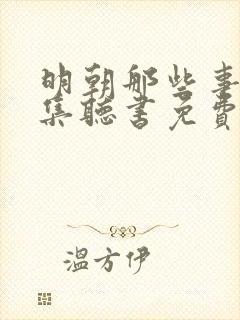 明朝那些事
集聽書免費
溫方伊